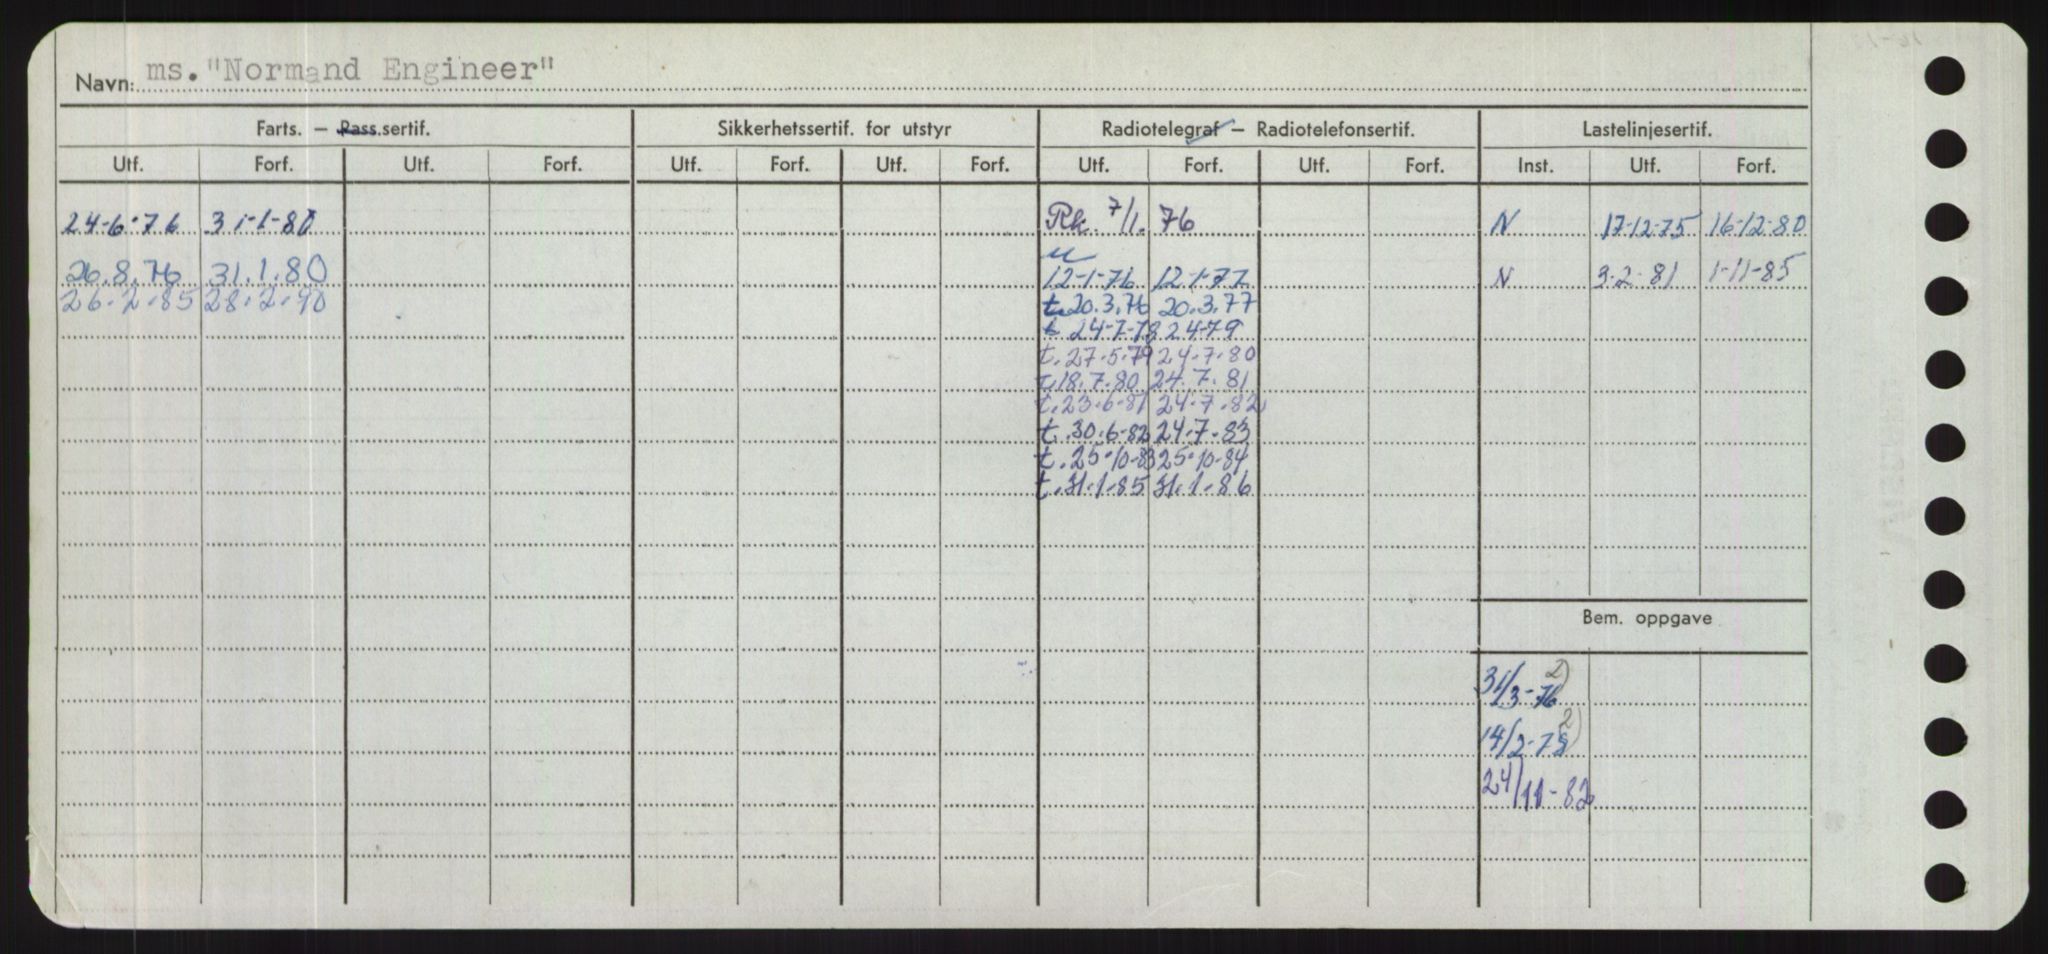 Navn: ms."Normand Engineer"
Farts. — Pass.sertif. Sikkerhetssertif. for utstyr Radiotelegraf — Radiotelefonsertif. Lastelinjesertif.
Utf. Forf. Utf. Forf. Utf. Forf. Utf. Forf. Utf. Forf. Utf. Forf. Inst. Utf. Forf.
24-6-76 31-1-80 Rk. 7/1. 76 N 17-12-75 16-12-80
26.8.76 31.1.80 12-1-76 12-1-77 N 3-2-81 1-11-85
26-2-85 28-2-90 t.20.3.76 20.3.77
t.24-7-78 24-79
t.27-5-79 24-7-80
t.18.7.80 24.7.81
t.23-6-81 24-7-82
t.30-6-82 24-7-83
t.25-10-83 25-10-84
t.31-1-85 31-1-86
Bem. oppgave
31/3-76 2)
14/2-79 2)
24/11-82